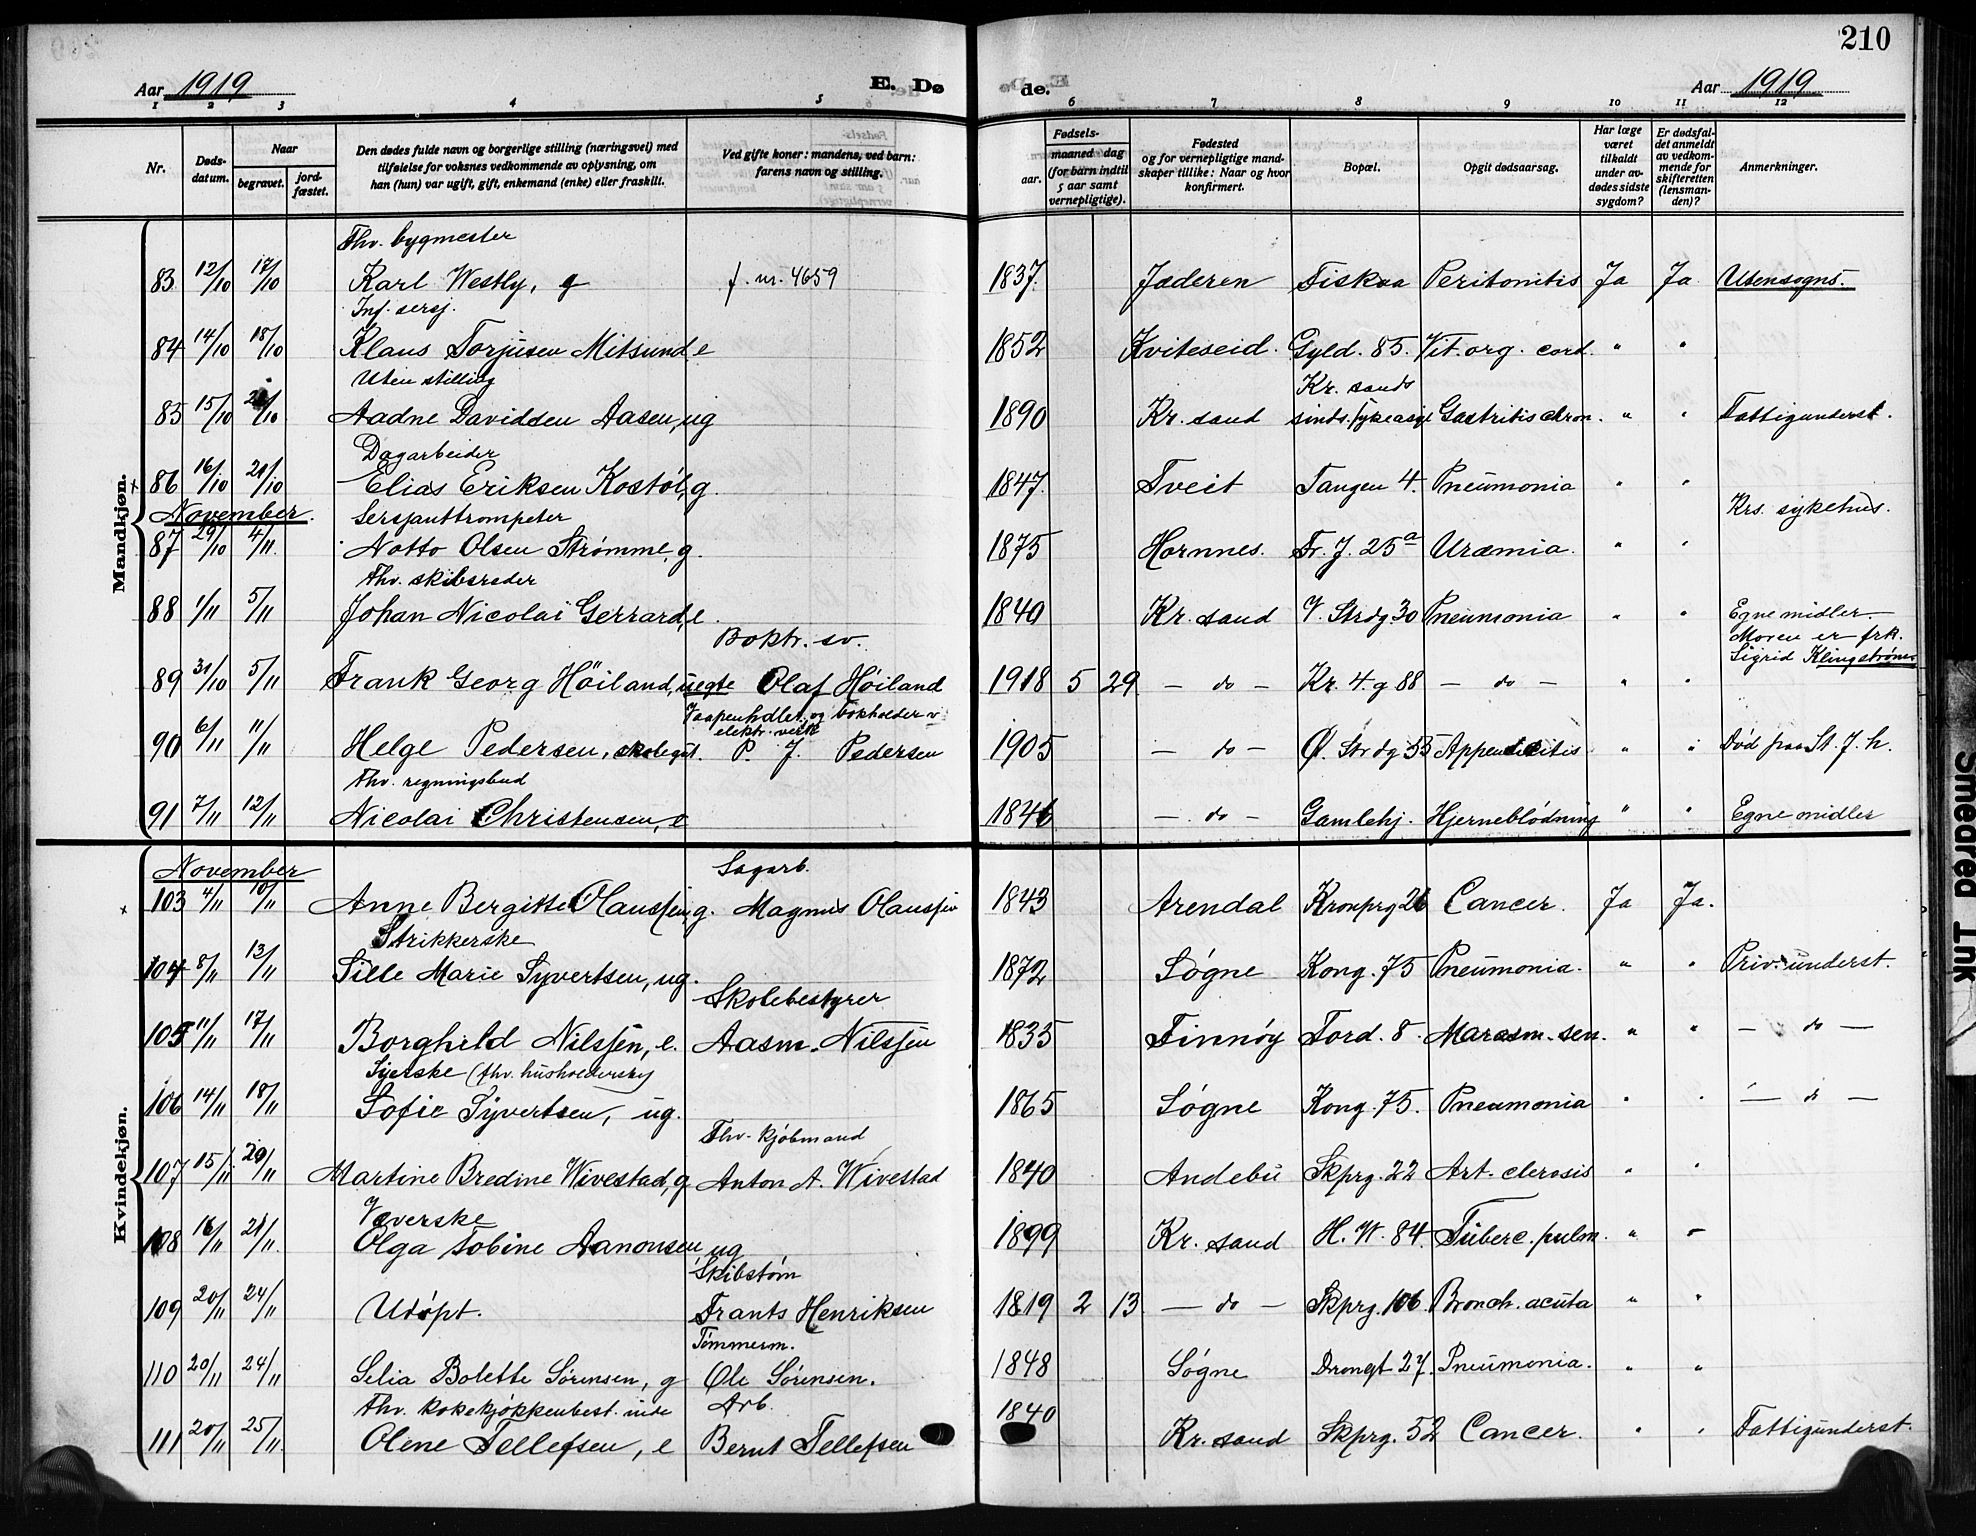 210
Aar 1919 E. Dø de. Aar 1919
1 2 3 4 5 6 7 8 9 10 11 12
Nr. Døds-datum. Naar begravet. jord-fæstet. Den dødes fulde navn og borgerlige stilling (næringsvei) med tilføielse for voksnes vedkommende av oplysning, om han (hun) var ugift, gift, enkemand (enke) eller fraskilt. Ved gifte koner: mandens, ved barn: farens navn og stilling. Fødsels- aar. maaned dag (for barn indtil 5 aar samt vernepligtige). Fødested og for vernepligtige mandskaper tillike: Naar og hvor konfirmert. Bopæl. Opgit dødsaarsag. Har læge været tilkaldt under avdødes sidste sygdom? Er dødsfaldet anmeldt av vedkommende for skifteretten (lensmanden)? Anmerkninger.
Mandkjøn.
Fhv. bygmester
83 12/10 17/10 Karl Westly, g f. nr. 4659 1837 Jæderen Fiskaa Peritonitis Ja Ja Utensogns.
Inf. sersj.
84 14/10 18/10 Klaus Torjusen Mitsund e 1852 Kviteseid. Gyld. 85. Vit. org. cord. " "
Uten stilling Kr. sands
85 15/10 /10 Aadne Davidsen Aasen, ug 1890 Kr. sand sinds.sykeasyl Gastritis chron. " " Fattigunderst.
Dagarbeider
x 86 16/10 21/10 Elias Eriksen Kostøl, g. 1847. Tveit Tangen 4. Pneumonia " "
November. Sersjanttrompeter Krs. sykehus.
87 29/10 4/11 Notto Olsen Strømme, g. 1875 Hornnes. Fr. J. 25a Uræmia. " "
Fhv. skibsreder
88 1/11 5/11 Johan Nicolai Gerrard, e. 1840 Kr. sand V. Strdg 30 Pneumonia " " Egne midler.
Boktr. sv. Moren er frk.
Sigrid Klingstrøm
89 31/10 5/11 Frank Georg Höiland, uegte Olaf Høiland 1918 5 29 — do — Kr. 4. g 88 — do — " "
Vaapenhdler. og bokholder v
elektr. verk
90 6/11 11/11 Helge Pedersen, skolegut. P. J. Pedersen 1905 — do — Ø. Strdg 55 Appendicitis " " Död paa St. J. h.
Fhv. regningsbud
91 7/11 12/11 Nicolai Christensen, e 1846 — do — Gamlehj. Hjerneblödning " " Egne midler
Kvindekjøn.
November Sagarb.
x 103 4/11 10/11 Anne Bergitte Olaussen, g. Magnus Olaussen 1843 Arendal Kronprg 26 Cancer. Ja Ja.
Strikkerske
104 8/11 13/11 Sille Marie Syvertsen, ug. 1872 Søgne Kong. 75 Pneumonia. " " Priv. underst.
Skolebestyrer
105 11/11 17/11 Borghild Nilssen, e. Aasm. Nilssen 1835 Finnøy Tord. 8. Marasm. sen. " " — do —
Syerske (fhv. husholderske)
106 14/11 18/11 Sofie Syvertsen, ug. 1865 Søgne Kong. 75. Pneumonia " " — do —
Fhv. kjøbmand
107 15/11 20/11 Martine Bredine Wivestad, g Anton A. Wivestad 1840 Andebu Skprg. 22 Art. clerosis " "
Væverske
108 16/11 21/11 Olga Tobine Aanonsen, ug 1899 Kr. sand H. W. 84. Tuberc. pulm. " "
Skibstøm
109 20/11 24/11 Udøpt. Frants Henriksen 1819 2 13 — do — Skprg. 106 Bronch. acuta " "
Tømmerm.
110 20/11 24/11 Selia Bolette Sørensen, g Ole Sørensen. 1848 Søgne Drongt 27. Pneumonia. " "
Fhv. kokekjøkkenbest. inde Arb.
111 20/11 25/11 Olene Tellefsen, e Bernt Tellefsen 1840 Kr. sand Skprg. 52 Cancer. " " Fattigunderst.
Smeared Ink